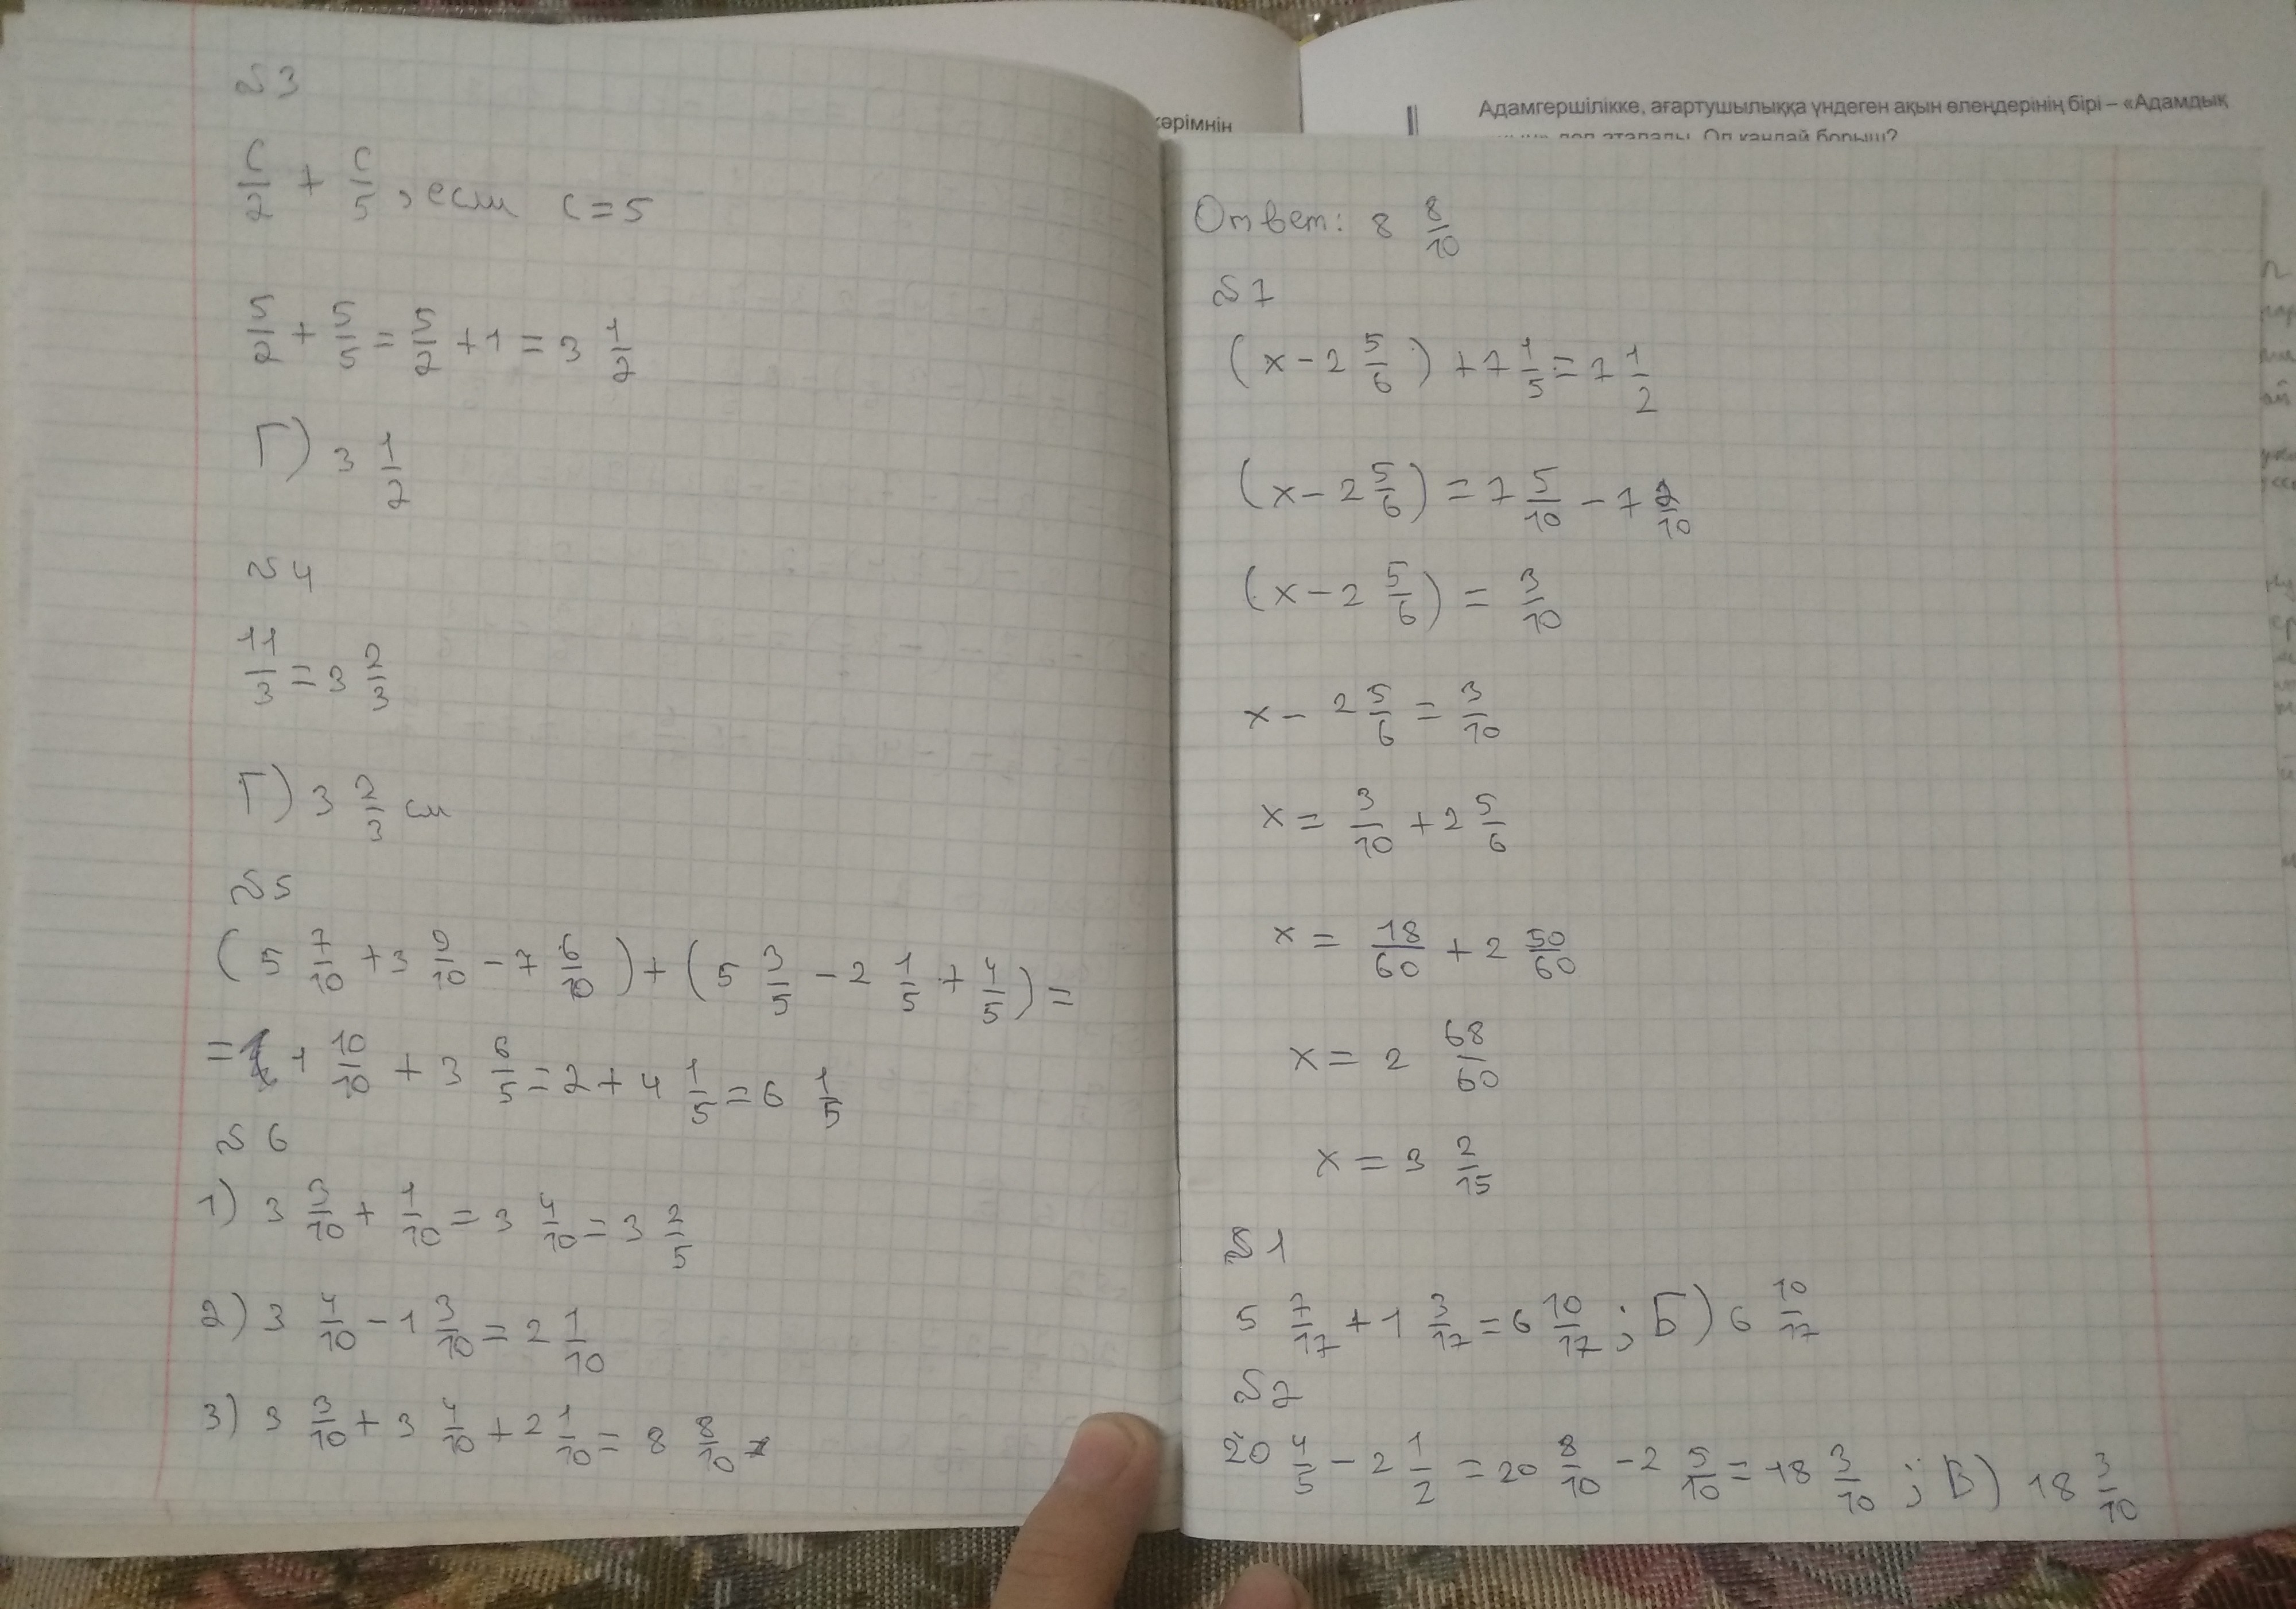 №3
c/2 + c/5, если c = 5
5/2 + 5/5 = 5/2 + 1 = 3 1/2
Г) 3 1/2
№4
11/3 = 3 2/3
Г) 3 2/3 см
№5
(5 7/10 + 3 9/10 - 7 6/10) + (5 3/5 - 2 1/5 + 4/5) =
= 1 + 10/10 + 3 6/5 = 2 + 4 1/5 = 6 1/5
№6
1) 3 3/10 + 1/10 = 3 4/10 = 3 2/5
2) 3 4/10 - 1 3/10 = 2 1/10
3) 3 3/10 + 3 4/10 + 2 1/10 = 8 8/10
кәрімнін
Адамгершілікке, ағартушылыққа үндеген ақын өлеңдерінің бірі – «Адамдық
деп аталады. Ол қандай борыш?
Ответ: 8 8/10
№7
(x - 2 5/6) + 7 1/5 = 7 1/2
(x - 2 5/6) = 7 5/10 - 7 2/10
(x - 2 5/6) = 3/10
x - 2 5/6 = 3/10
x = 3/10 + 2 5/6
x = 18/60 + 2 50/60
x = 2 68/60
x = 3 2/15
№1
5 7/17 + 1 3/17 = 6 10/17 ; Б) 6 10/17
№2
20 4/5 - 2 1/2 = 20 8/10 - 2 5/10 = 18 3/10 ; В) 18 3/10